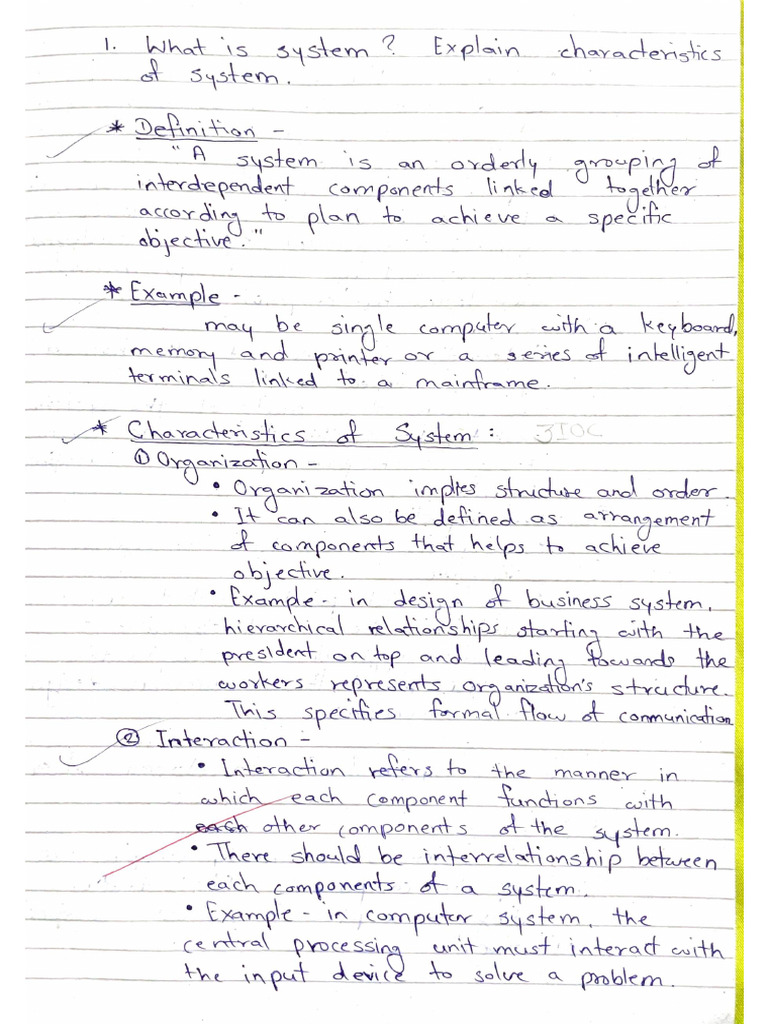 1. What is system? Explain characteristics
of system.
* Definition -
"A system is an orderly grouping of
interdependent components linked together
according to plan to achieve a specific
objective."
* Example -
may be single computer with a keyboard,
memory and printer or a series of intelligent
terminals linked to a mainframe.
* Characteristics of System : 3IOC
① Organization -
• Organization implies structure and order.
• It can also be defined as arrangement
of components that helps to achieve
objective.
• Example - in design of business system,
hierarchical relationships starting with the
president on top and leading towards the
workers represents organization's structure.
This specifies formal flow of communication
② Interaction -
• Interaction refers to the manner in
which each component functions with
each other components of the system.
• There should be interrelationship between
each components of a system.
• Example - in computer system, the
central processing unit must interact with
the input device to solve a problem.